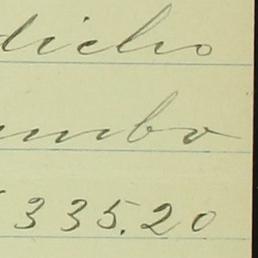 dicho
umbo
335.20